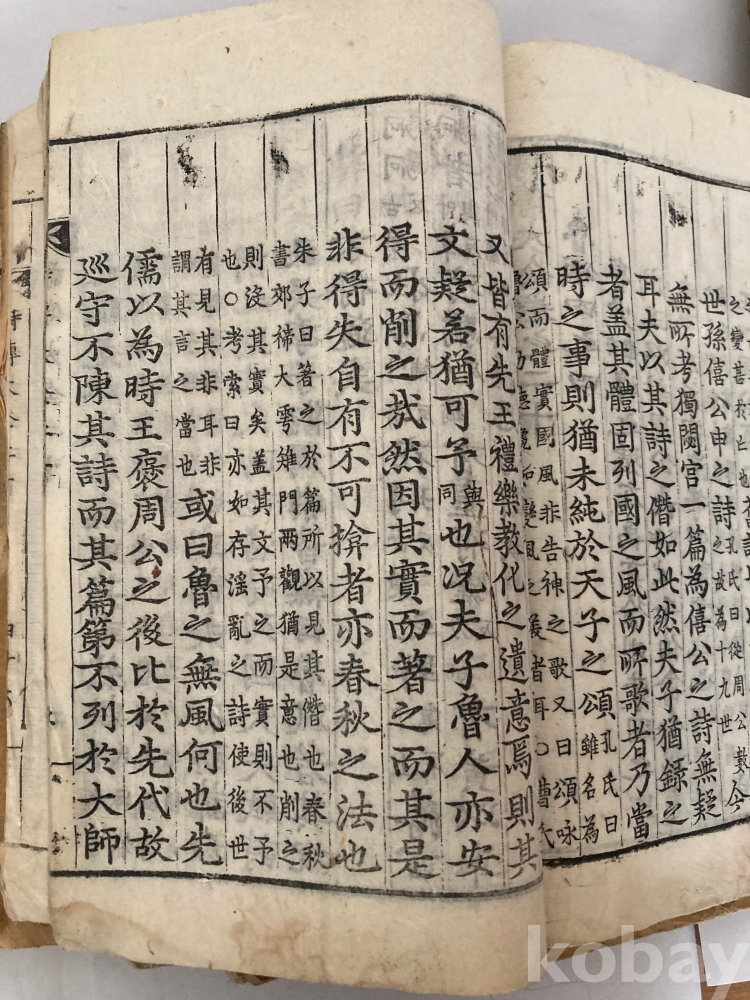 之變甚於亡也
今
世孫僖公申之詩孔氏曰從周公數
之故為十九世
無所考獨閟宮一篇為僖公之詩無疑
耳夫以其詩之僭如此然夫子猶録之
者蓋其體固列國之風而所歌者乃當
時之事則猶未純於天子之頌孔氏曰
雖名為
頌而體實國風非告神之歌又曰頌咏
魯公功德纔如變風之美者耳○曹氏
又皆有先王禮樂教化之遺意焉則其
文疑若猶可予與同也况夫子魯人亦安
得而削之㢤然因其實而著之而其是
非得失自有不可揜者亦春秋之法也
朱子曰著之於篇所以見其僭也春秋
書郊禘大雩雉門兩觀猶是意也削之
則沒其實矣蓋其文予之而實則不予
也○考索曰亦如存淫亂之詩使後世
有見其非耳非
謂其言之當也或曰魯之無風何也先
儒以為時王褒周公之後比於先代故
巡守不陳其詩而其篇第不列於大師
kobay